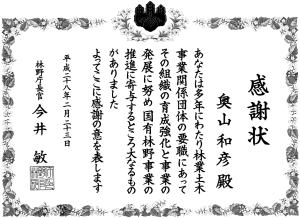 感謝状
奥山和彦殿
あなたは多年にわたり林業土木
事業関係団体の要職にあって
その組織の育成強化と事業の
発展に努め国有林野事業の
推進に寄与するところ大なるもの
がありました
よってここに感謝の意を表します
平成二十八年二月二十三日
林野庁長官 今井敏